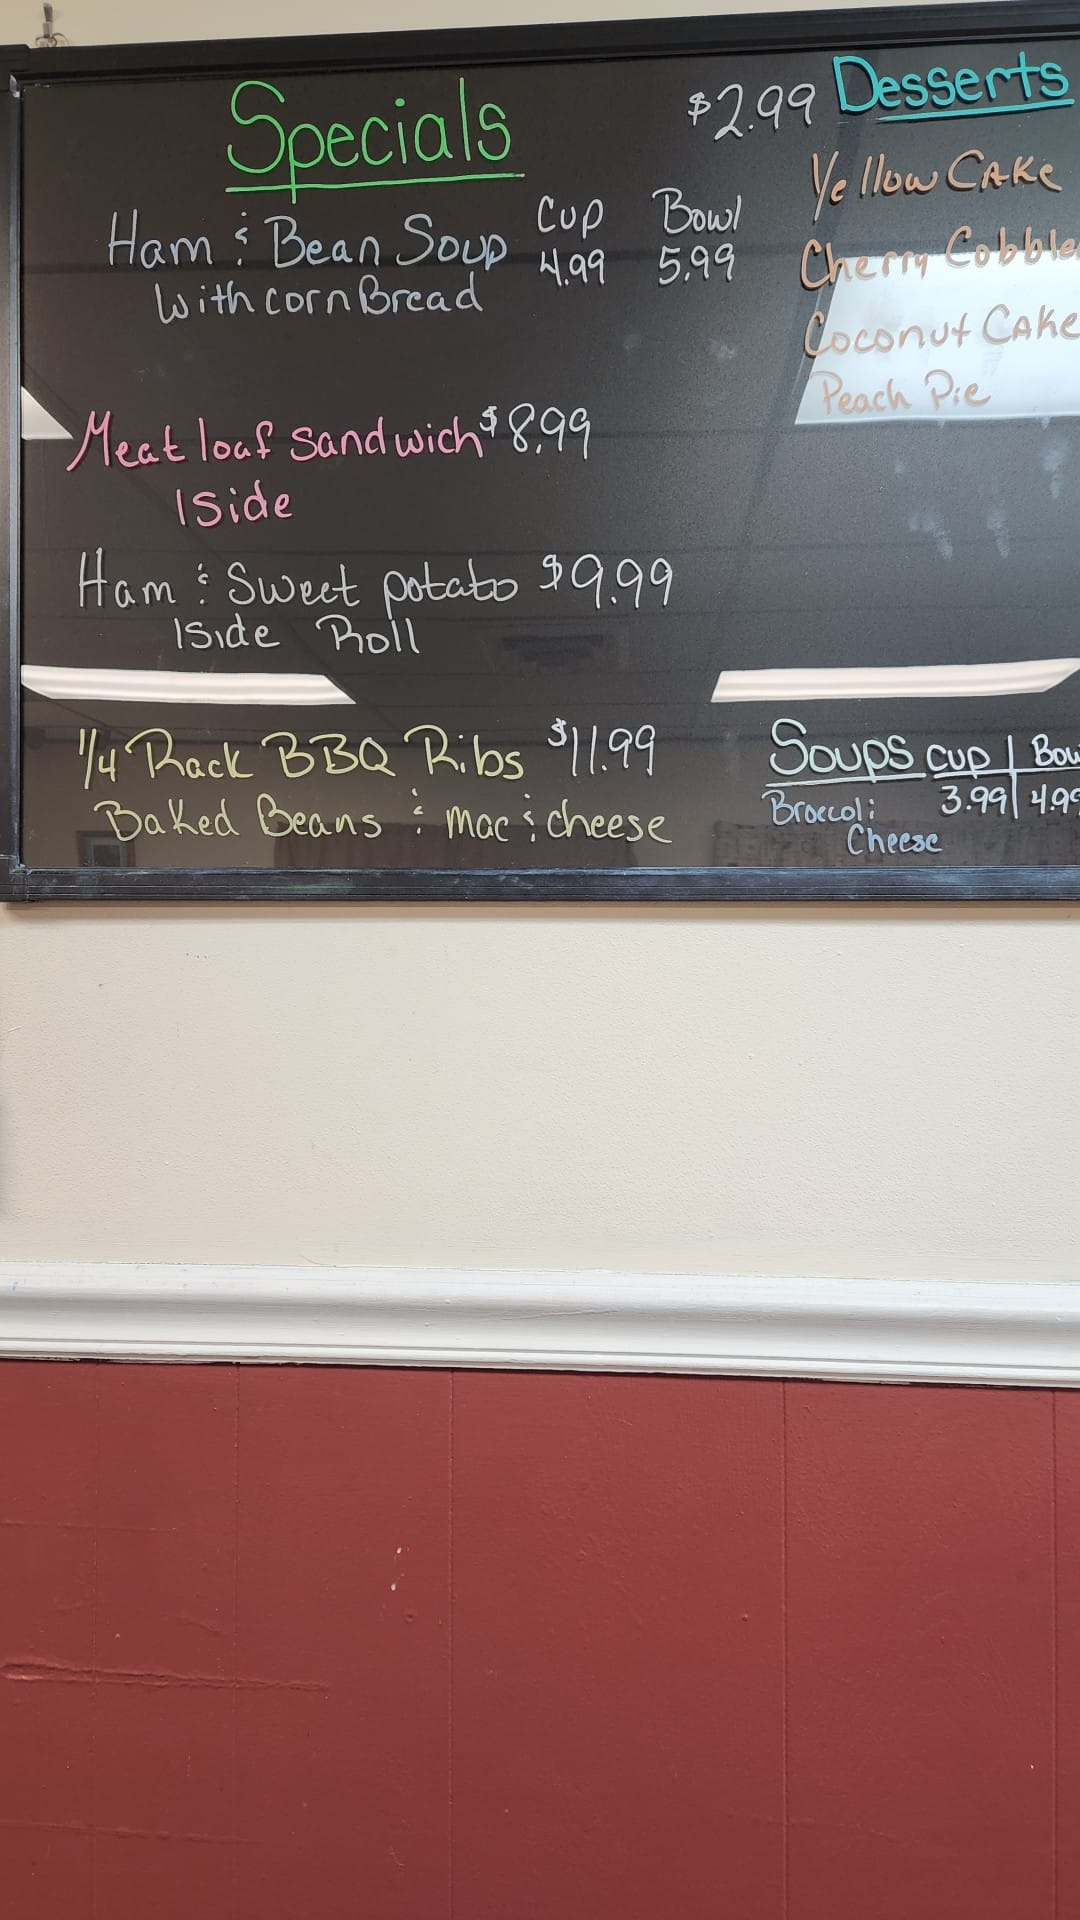 Specials
Ham & Bean Soup
With corn Bread
Cup Bowl
4.99 5.99
Meat loaf Sandwich $8.99
1 Side
Ham & Sweet potato $9.99
1 Side Roll
1/4 Rack BBQ Ribs $11.99
Baked Beans & mac & cheese
$2.99 Desserts
Yellow Cake
Cherry Cobbler
Coconut Cake
Peach Pie
Soups Cup | Bow
Broccoli & 3.99 | 4.99
Cheese